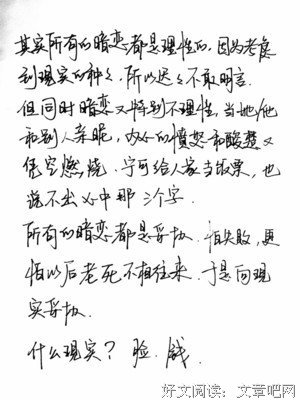 其实所有的暗恋都是理性的.因为考虑
到现实的种种.所以迟迟不敢明言.
但同时暗恋又特别不理性,当她/他
和别人亲昵,内心的愤怒和酸楚又
凭空燃烧.宁可给人家当饭票,也
说不出心中那三个字.
所有的暗恋都是妥协.怕失败,更
怕以后老死不相往来.于是向现
实妥协.
什么现实? 脸.钱.
好文阅读:文章吧网